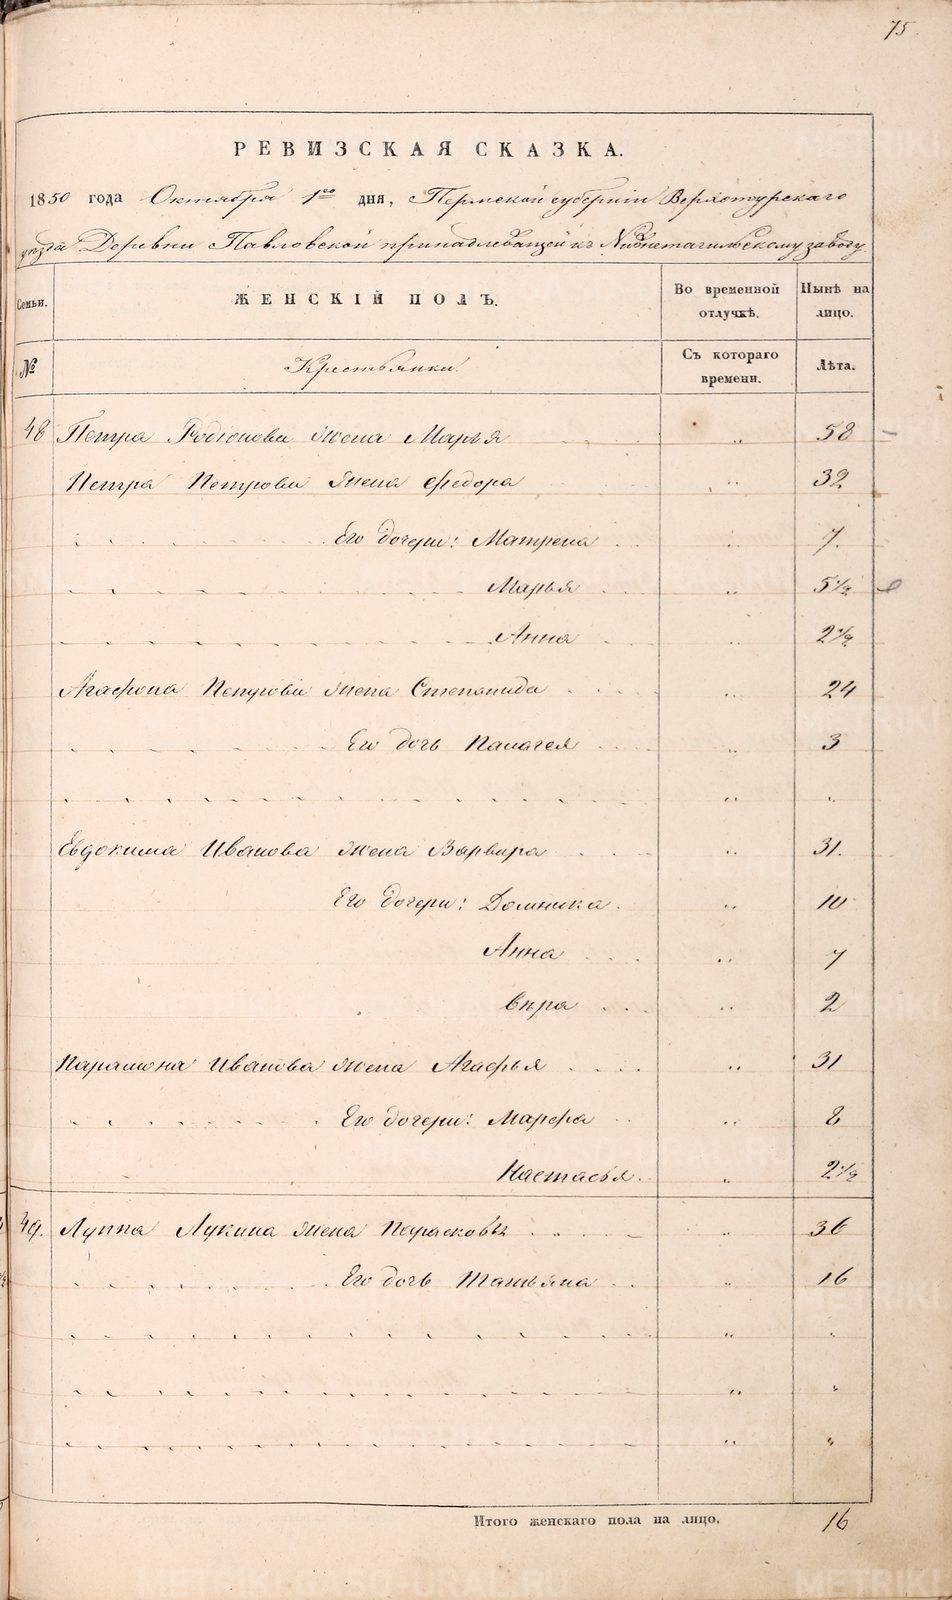 75.
РЕВИЗСКАЯ СКАЗКА.
1850 года Октября 1го дня, Пермской губерніи Верхотурскаго
уѣзда Деревни Павловской принадлежащей къ Нижнетагильскому заводу
Семьи. ЖЕНСКІЙ ПОЛЪ. Во временной отлучкѣ. Нынѣ на лицо.
№ Крестьянки. Съ котораго времени. Лѣта.
48 Петра Родіонова жена Марья " 58
Петра Петрова жена Федора " 32
Его дочери: Матрена " 7.
Марья " 5 1/2
Анна " 2 1/2
Агафона Петрова жена Степанида " 24
Его дочь Палагея " 3
" "
Евдокима Иванова жена Варвара " 31.
Его дочери: Домника. " 10
Анна " 7
Вѣра " 2
Парамона Иванова жена Агафья " 31
Его дочери: Марфа " 8
Настасья. " 2 1/2
49. Луппа Лукина жена Парасковья " 36
Его дочь Татьяна " 16
" "
" "
" "
Итого женскаго пола на лицо. 16
METRIKI.GASO-URAL.RU